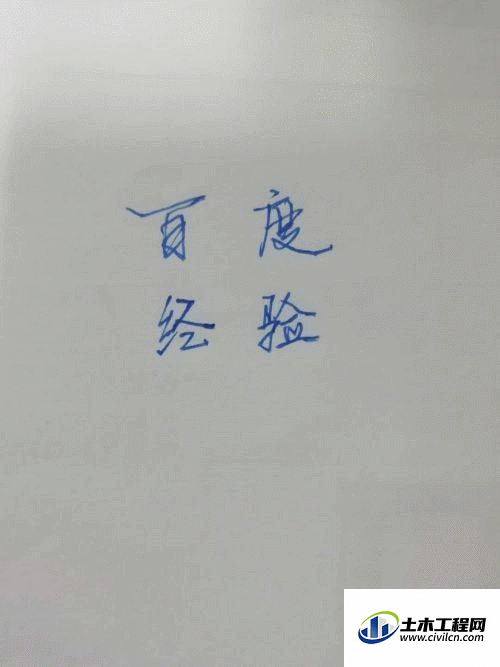 百度
经验
土木工程网
www.civilcn.com